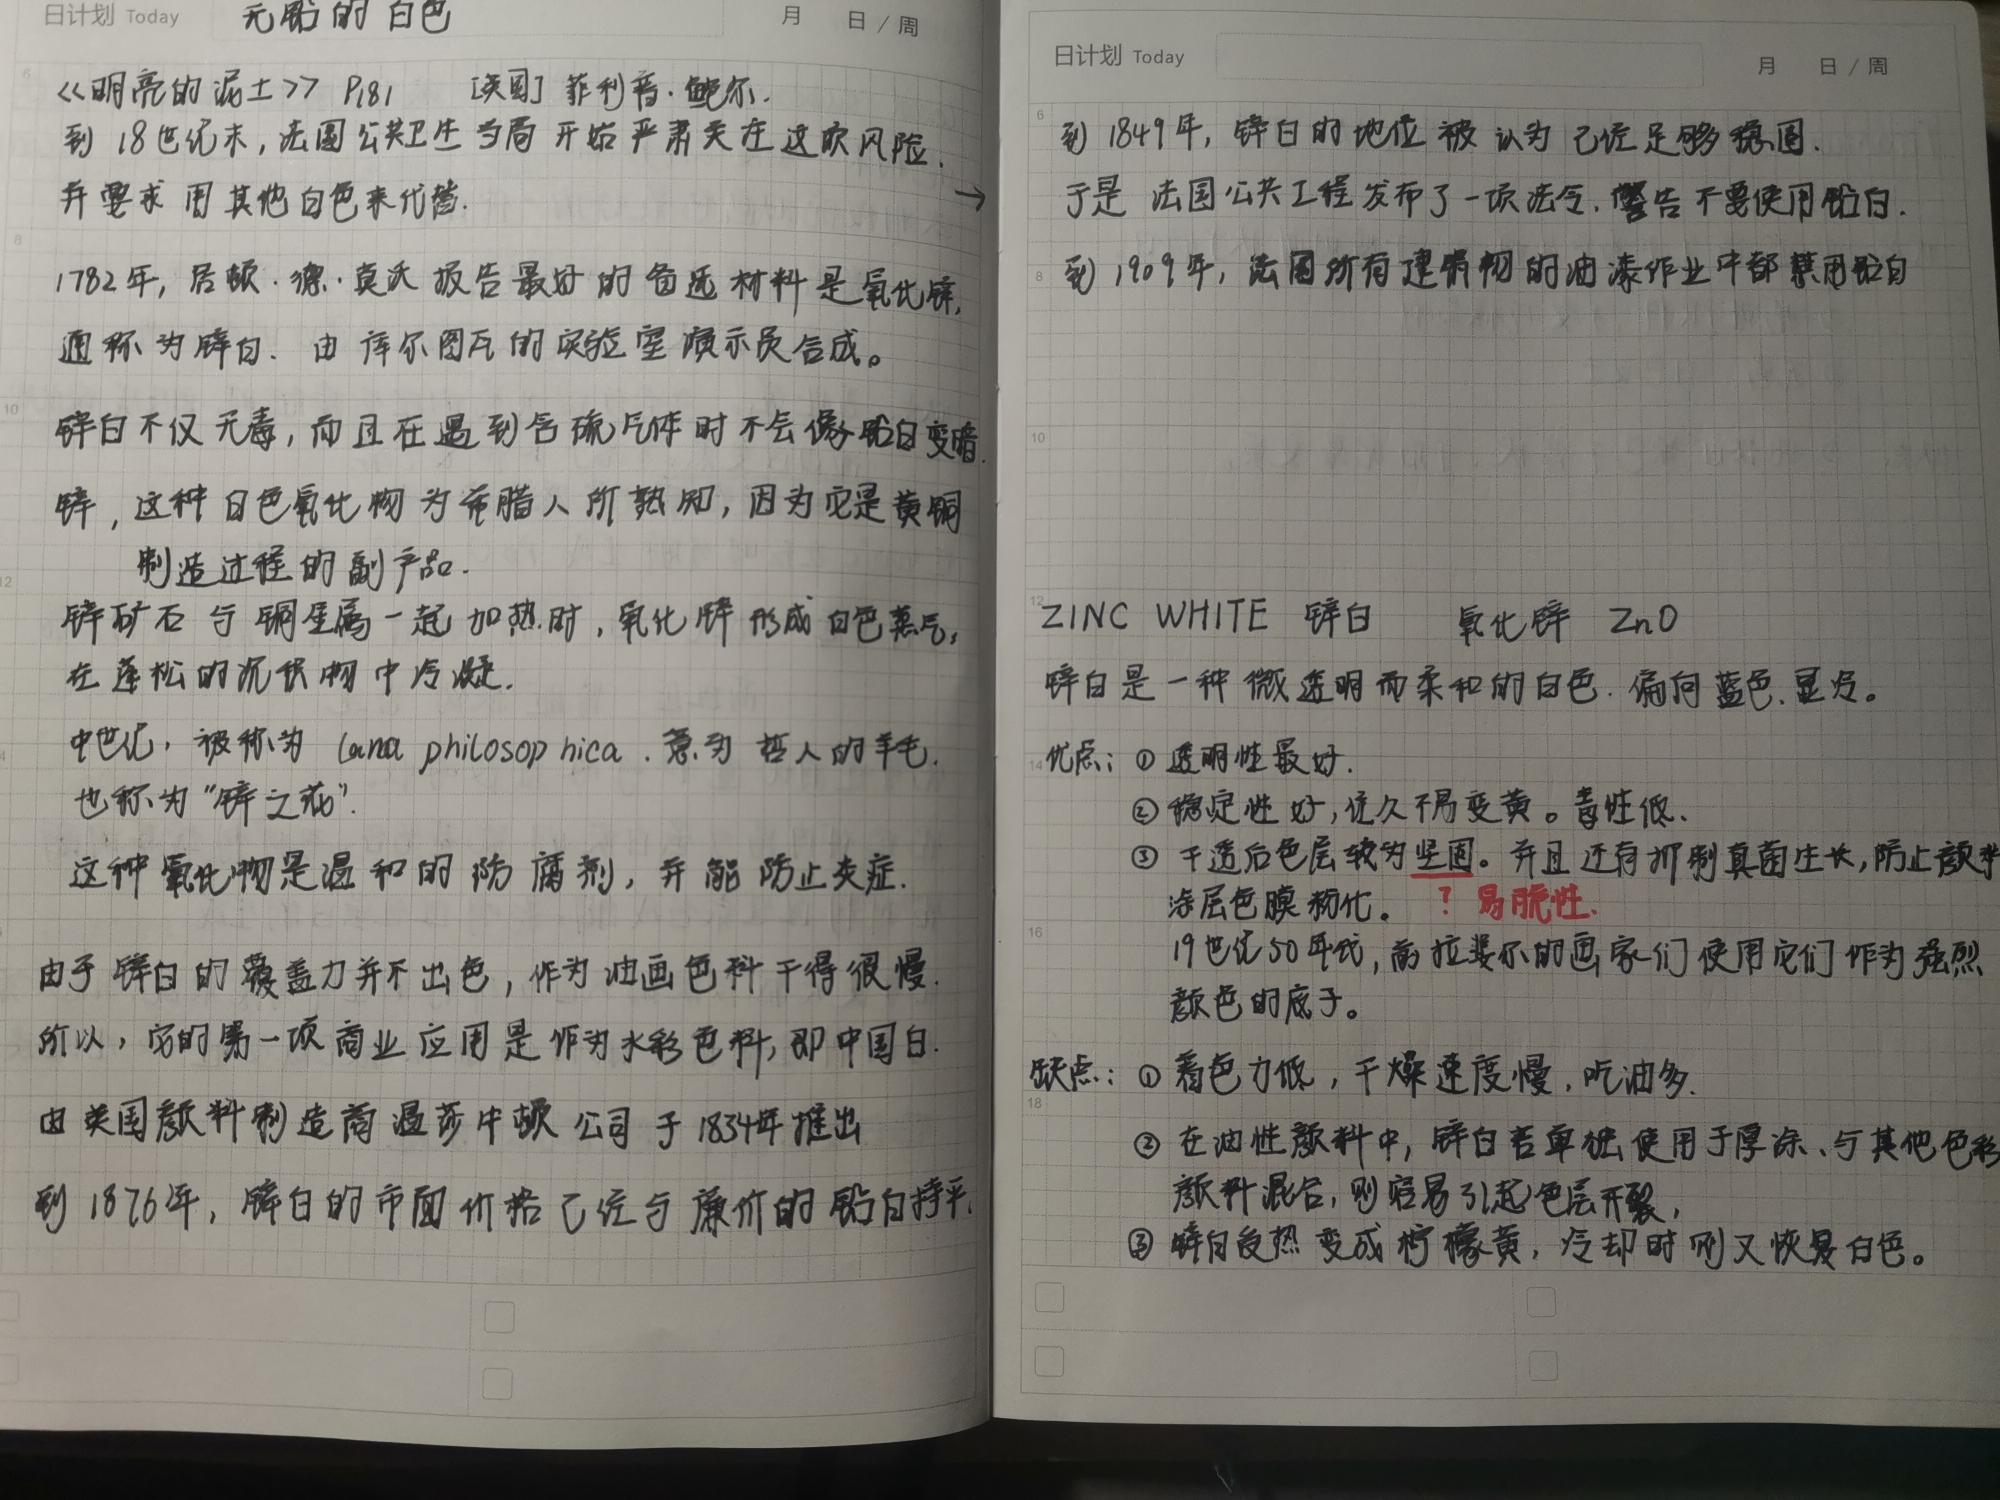 日计划 Today 无铅的白色 月 日/周
<<明亮的泥土>> P181 [英国] 菲利普·鲍尔.
到18世纪末,法国公共卫生当局开始严肃关在这次风险.
并要求用其他白色来代替.
1782年,居顿·德·莫沃报告最好的备选材料是氧化锌,
通称为锌白.由库尔图瓦的实验室演示员合成。
锌白不仅无毒,而且在遇到含硫气体时不会像铅白变暗.
锌,这种白色氧化物为希腊人所熟知,因为它是黄铜
制造过程的副产品.
锌矿石与铜金属一起加热时,氧化锌形成白色蒸气,
在蓬松的沉积物中冷凝.
中世纪,被称为 lana philosophica.意为哲人的羊毛.
也称为“锌之花”.
这种氧化物是温和的防腐剂,并能防止炎症.
由于锌白的覆盖力并不出色,作为油画色料干得很慢.
所以,它的第一项商业应用是作为水彩色料,即中国白.
由英国颜料制造商温莎牛顿公司于1834年推出
到1876年,锌白的市面价格已经与廉价的铅白持平.
→
日计划 Today 月 日/周
到1849年,锌白的地位被认为已经足够稳固.
于是法国公共工程发布了一项法令.警告不要使用铅白.
到1909年,法国所有建筑物的油漆作业中都禁用铅白
ZINC WHITE 锌白 氧化锌 ZnO
锌白是一种微透明而柔和的白色.偏向蓝色.显冷。
优点:①透明性最好.
②稳定性好,经久不易变黄。毒性低.
③干透后色层较为坚固。并且还有抑制真菌生长,防止颜料
涂层色膜粉化. ?易脆性.
19世纪50年代,前拉斐尔的画家们使用它们作为强烈
颜色的底子。
缺点:①着色力低,干燥速度慢,吃油多.
②在油性颜料中,锌白若单独使用于厚涂、与其他色彩
颜料混合,则容易引起色层开裂,
③锌白受热变成柠檬黄,冷却时则又恢复白色。